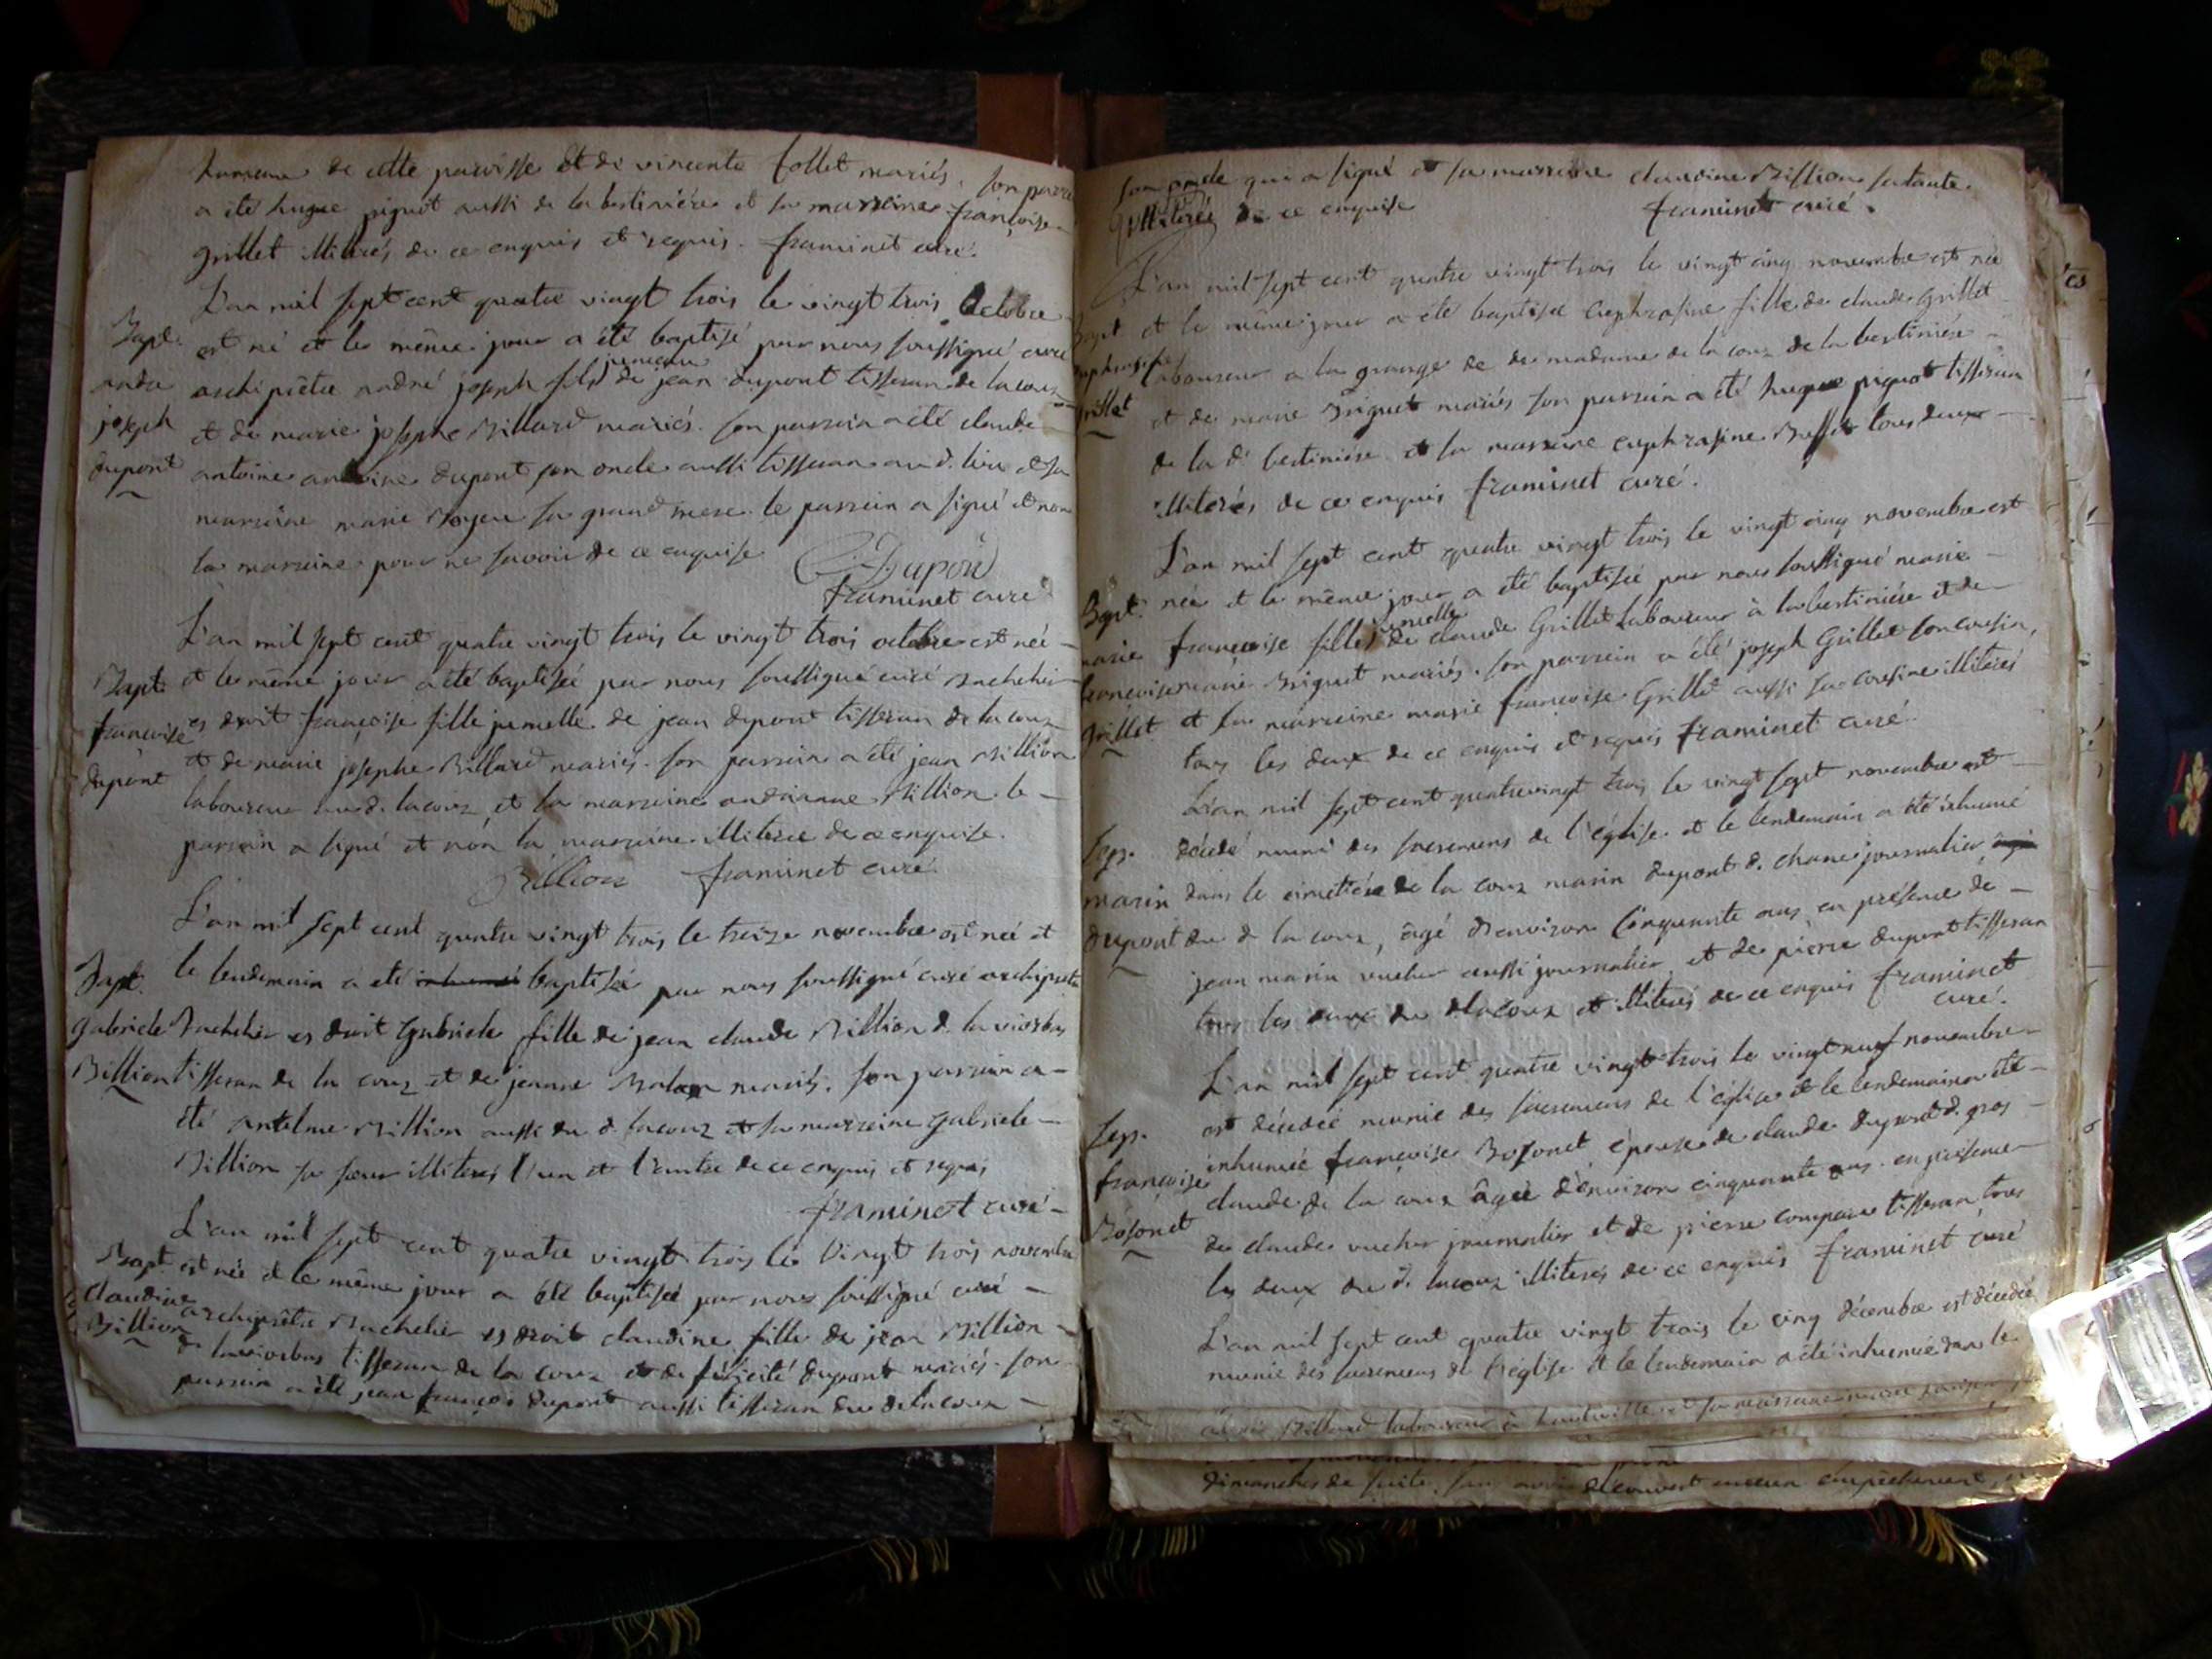 de cette paroisse et de vincente follet mariés. son parrein
a été hugue piguet aussi de la bertinière et sa marreine françoise
grillet illiterés de ce enquis et requis. framinet curé.
L'an mil sept cent quatre vingt trois le vingt trois octobre
Bapt. est né et le même jour a été baptisé par nous soussigné curé
andré archiprêtre andré joseph fils jumeau de jean dupont tisseran de lacoux
joseph et de marie josephe Billard mariés. son parrein a été claude
dupont antoine antoine dupont son oncle aussi tisseran au d. lieu et sa
marreine marie sa grand mere. le parrein a signé et non
la marreine pour ne savoir de ce enquise C. Dupon
framinet curé
L'an mil sept cent quatre vingt trois le vingt trois octobre est née
Bapt. et le même jour a été baptisée par nous soussigné curé Bachelier
françoise es droit françoise fille jumelle de jean dupont tisseran de lacoux
dupont et de marie josephe Billard mariés. son parrein a été jean Billion
laboureur du d. lacoux, et sa marreine andrianne Billion le
parrein a signé et non la marreine illiterée de ce enquise.
Billion framinet curé.
L'an mil sept cent quatre vingt trois le treize novembre est née et
Bapt. le lendemain a été inhumé baptisée par nous soussigné curé archiprêtre
gabriele Bachelier es droit Gabriele fille de jean claude Billion d. la viorbas
Billion tisseran de la coux et de jeanne mariés. son parrein a
été antelme Billion aussi du d. lacoux et sa marreine gabriele
Billion sa soeur illiterés l'un et l'autre de ce enquis et requis
framinet curé
L'an mil sept cent quatre vingt trois le vingt trois novembre
Bapt. est née et le même jour a été baptisée par nous soussigné curé
claudine archiprêtre Bachelier es droit claudine fille de jean Billion
Billion d. laviorbas tisseran de la coux et de félicité dupont mariés. son
parrein a été jean françois dupont aussi tisseran du d. lacoux
son oncle qui a signé et sa marreine claudine Billion sa tante
illiterée de ce enquise framinet curé.
L'an mil sept cent quatre vingt trois le vingt cinq novembre est née
Bapt et le même jour a été baptisée euphrasine fille de claude Grillet
euphrasine laboureur a la grange de de madame de la coux de la bertinière
grillet et de marie Briguet mariés son parrein a été hugue piguet tisseran
de la d. bertinière et sa marreine euphrasine tous deux
illiterés de ce enquis framinet curé.
L'an mil sept cent quatre vingt trois le vingt cinq novembre est
Bapt. née et le même jour a été baptisée par nous soussigné marie
marie françoise fille jumelle de claude Grillet laboureur à la bertinière et de
françoise marie Briguet mariés. son parrein a été joseph Grillet son cousin,
grillet et sa marreine marie françoise Grillet aussi sa cousine illiterés
tous les deux de ce enquis et requis framinet curé.
L'an mil sept cent quatrevingt trois le vingt sept novembre est
Sep. décédé muni des sacremens de l'église et le lendemain a été inhumé
marin dans le cimetière de la coux marin dupont d. chane journalier
dupont du d. la coux, âgé d'environ cinquante ans, en présence de
jean marin vucher aussi journalier et de pierre dupont tisseran
tous les deux du d. lacoux et illiterés de ce enquis framinet
curé.
L'an mil sept cent quatre vingt trois le vingt neuf novembre
Sep. est décédée munie des sacremens de l'église et le lendemain a été
françoise inhumée françoise Bozonet épouse de claude dupont d. gros
Bozonet claude de la coux âgée d'environ cinquante ans. en présence
de claude vucher journalier et de pierre compare tisseran, tous
les deux du d. lacoux illiterés de ce enquis framinet curé
L'an mil sept cent quatre vingt trois le cinq décembre est décédée
munie des sacremens de l'église et le lendemain a été inhumée dans le
Billard laboureur à hauteville et sa marreine
dimanches de suite, sans avoir découvert aucun empêchement